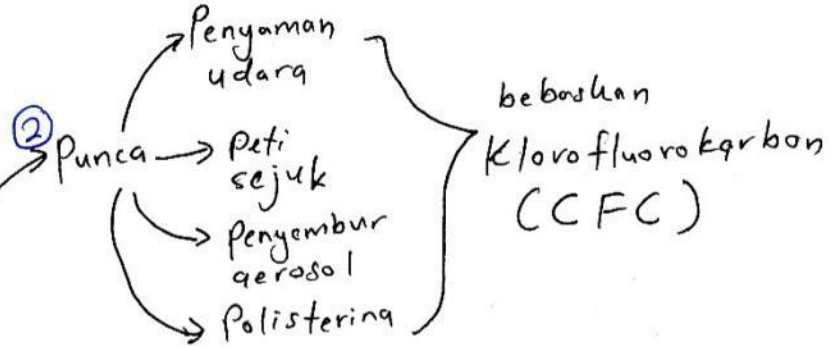 Penyaman
udara
② Punca
Peti
sejuk
Penyembur
aerosol
Polisterina
bebaskan
Klorofluorokarbon
(CFC)